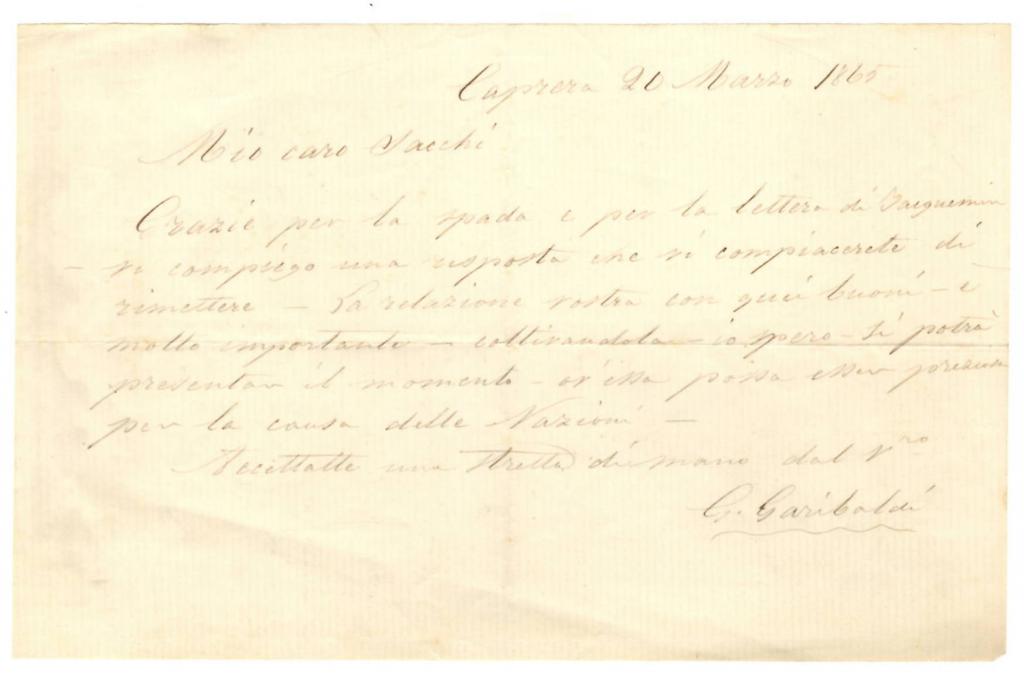 Caprera 20 Marzo 1865
Mio caro Sacchi
Grazie per la spada e per la lettera di Jacquemin
- vi compiego una risposta che vi compiacerete di
rimettere - La relazione vostra con quei buoni - è
molto importante - coltivandola - io spero - si potrà
presentar il momento - ov'essa possa esser preziosa
per la causa delle Nazioni -
Accettatte una stretta di mano dal Vro
G. Garibaldi